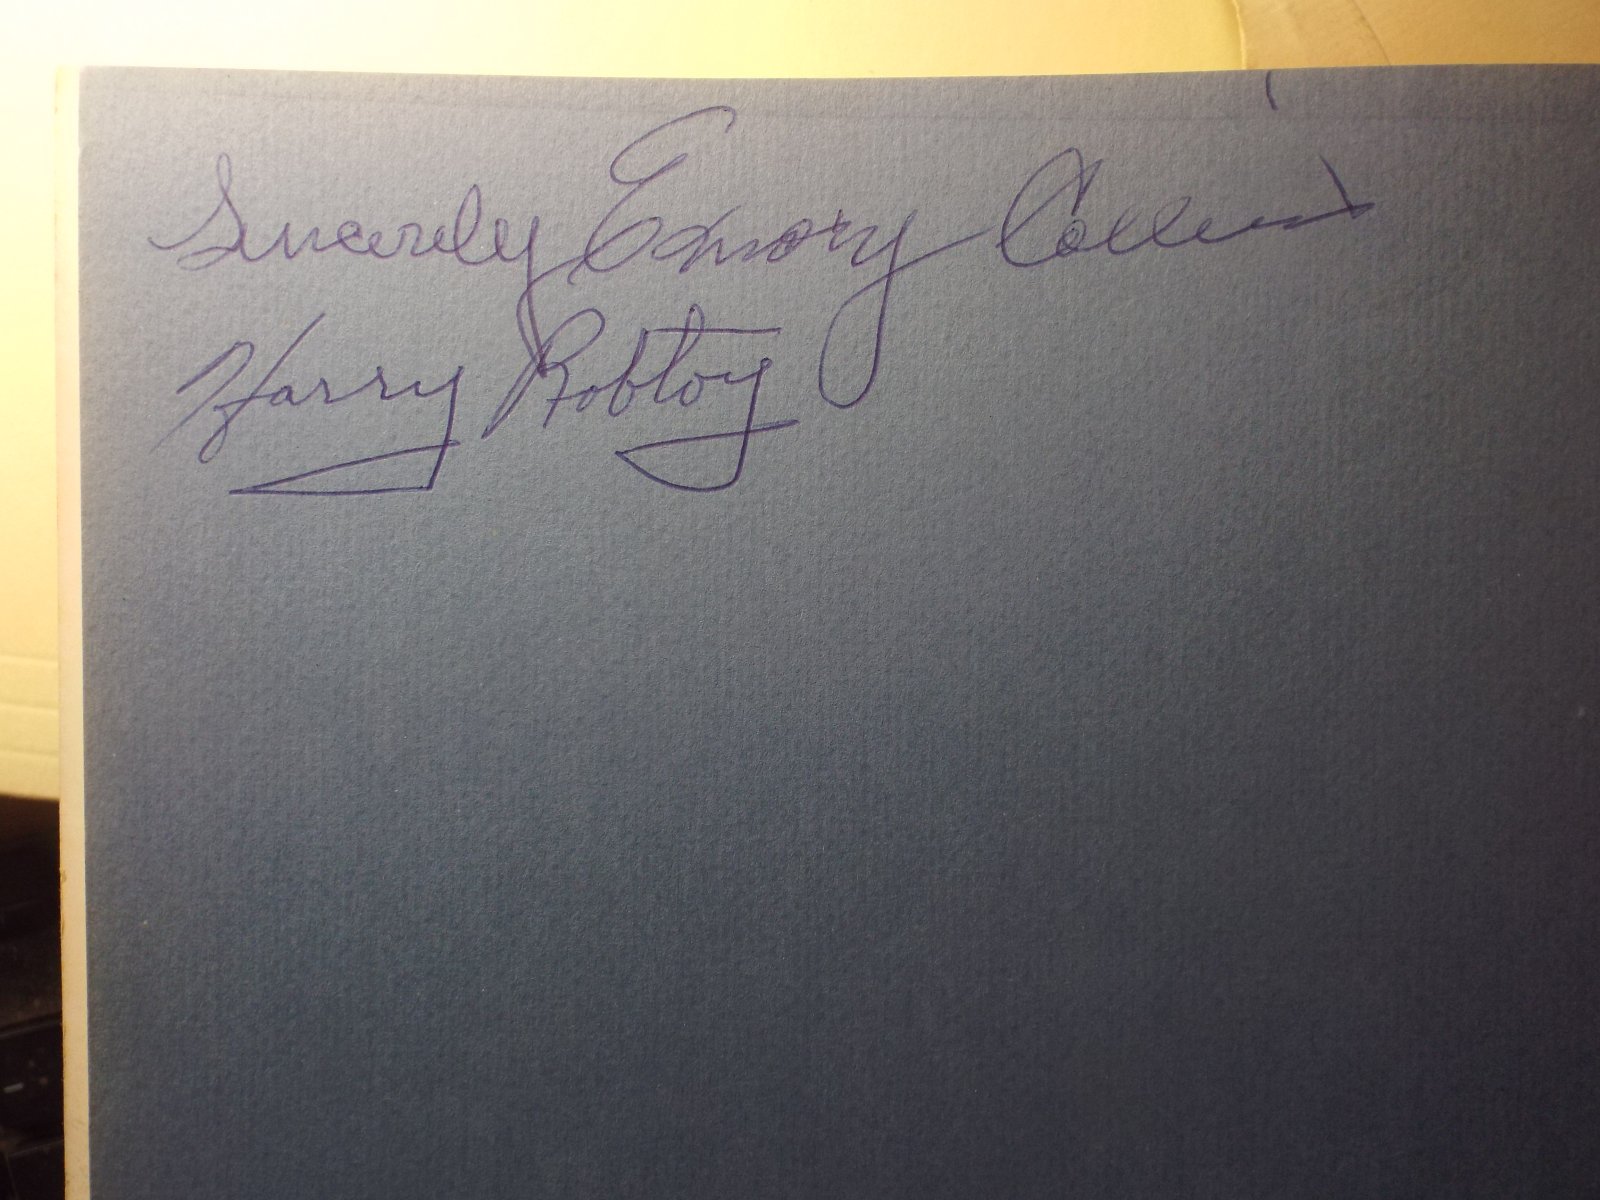 Sincerely Emory Collins
Harry Robtoy